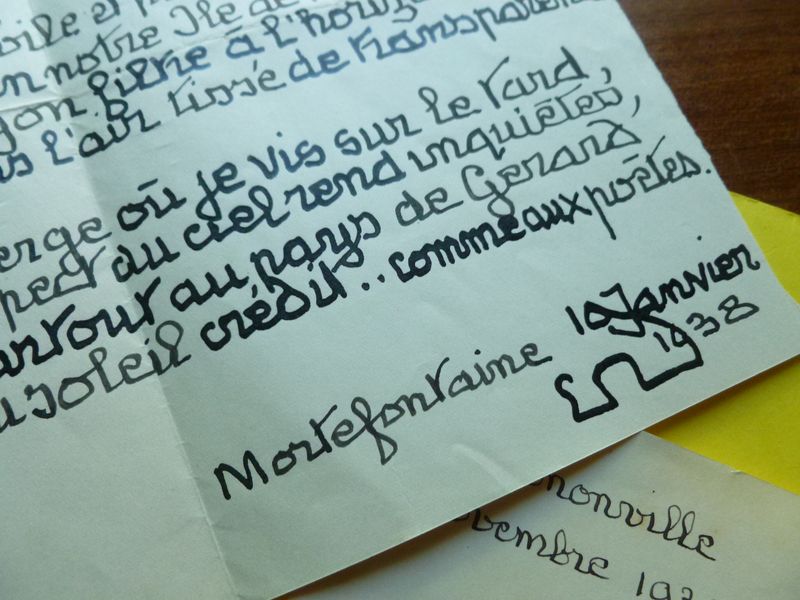 notre Ile de
filtre à l'horiz
l'air tissé de transparen
où je vis sur le tard,
du ciel rend inquiétes,
au pays de Gerard,
soleil crédit.. comme aux poétes.
Mortefontaine 10 Janvier
1938
nonville
vembre 193